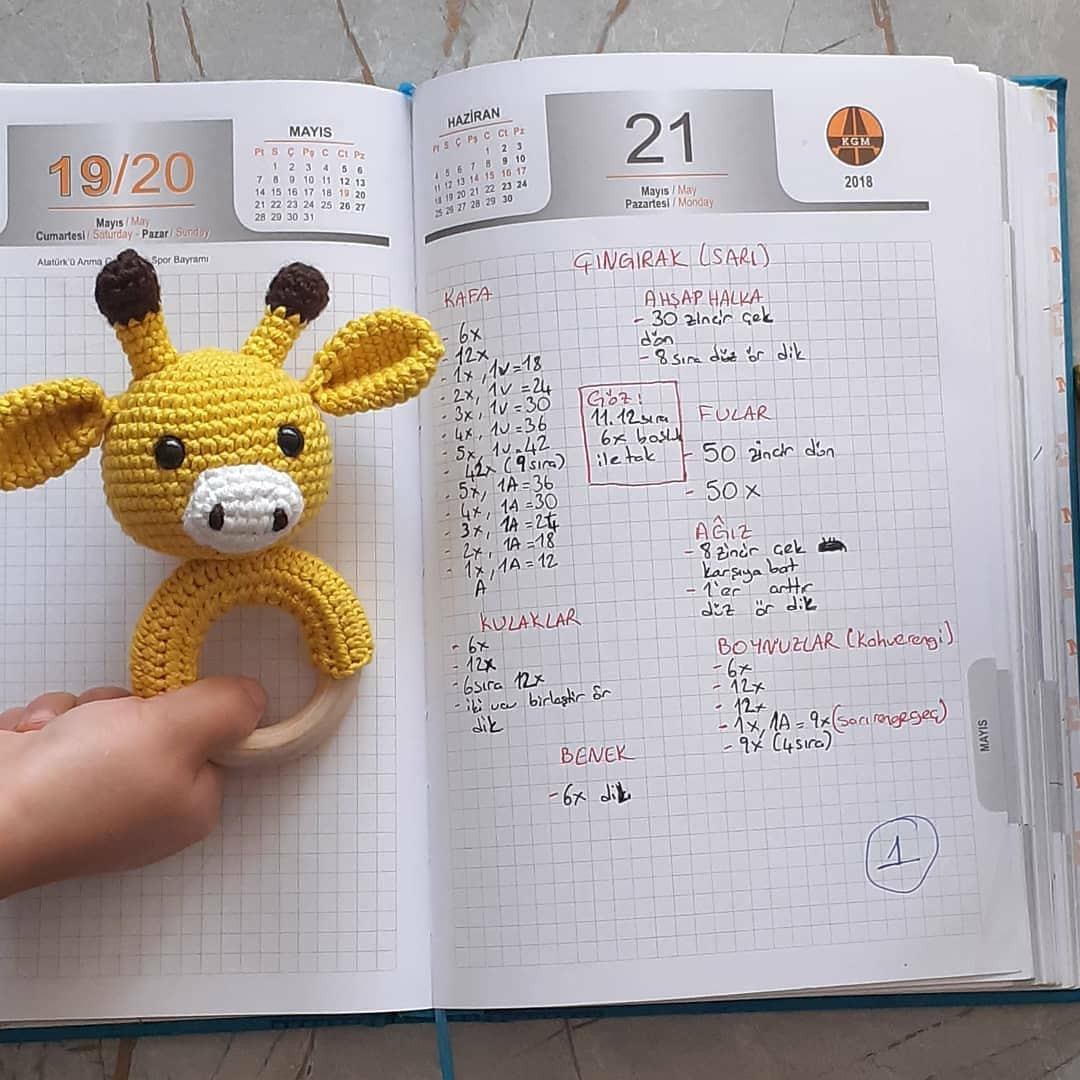 19/20
Mayıs / May
Cumartesi / Saturday - Pazar / Sunday
Atatürk'ü Anma Spor Bayramı
MAYIS
Pt S Ç Pş C Ct Pz
1 2 3 4 5 6
7 8 9 10 11 12 13
14 15 16 17 18 19 20
21 22 23 24 25 26 27
28 29 30 31
HAZİRAN
Pt S Ç Pş C Ct Pz
1 2 3
4 5 6 7 8 9 10
11 12 13 14 15 16 17
18 19 20 21 22 23 24
25 26 27 28 29 30
21
Mayıs / May
Pazartesi / Monday
KGM
2018
ÇINGIRAK (SARI)
KAFA
- 6x
- 12x
- 1x, 1V=18
- 2x, 1V=24
- 3x, 1V=30
- 4x, 1V=36
- 5x, 1V=42
- 42x (9 sıra)
- 5x, 1A=36
- 4x, 1A=30
- 3x, 1A=24
- 2x, 1A=18
- 1x, 1A=12
A
KULAKLAR
- 6x
- 12x
- 6 sıra 12x
- iki ucu birleştir ör
dik
BENEK
- 6x dik
AHŞAP HALKA
- 30 zincir çek
dön
- 8 sıra düz ör dik
Göz:
11.12 sıra
6x boşluk
ile tak
FULAR
- 50 zincir dön
- 50 x
AĞIZ
- 8 zincir çek
karşıya bat
- 1'er arttır
düz ör dik
BOYNUZLAR (Kahverengi)
- 6x
- 12x
- 12x
- 1x, 1A = 9x (sarı renge geç)
- 9x (4 sıra)
MAYIS
1